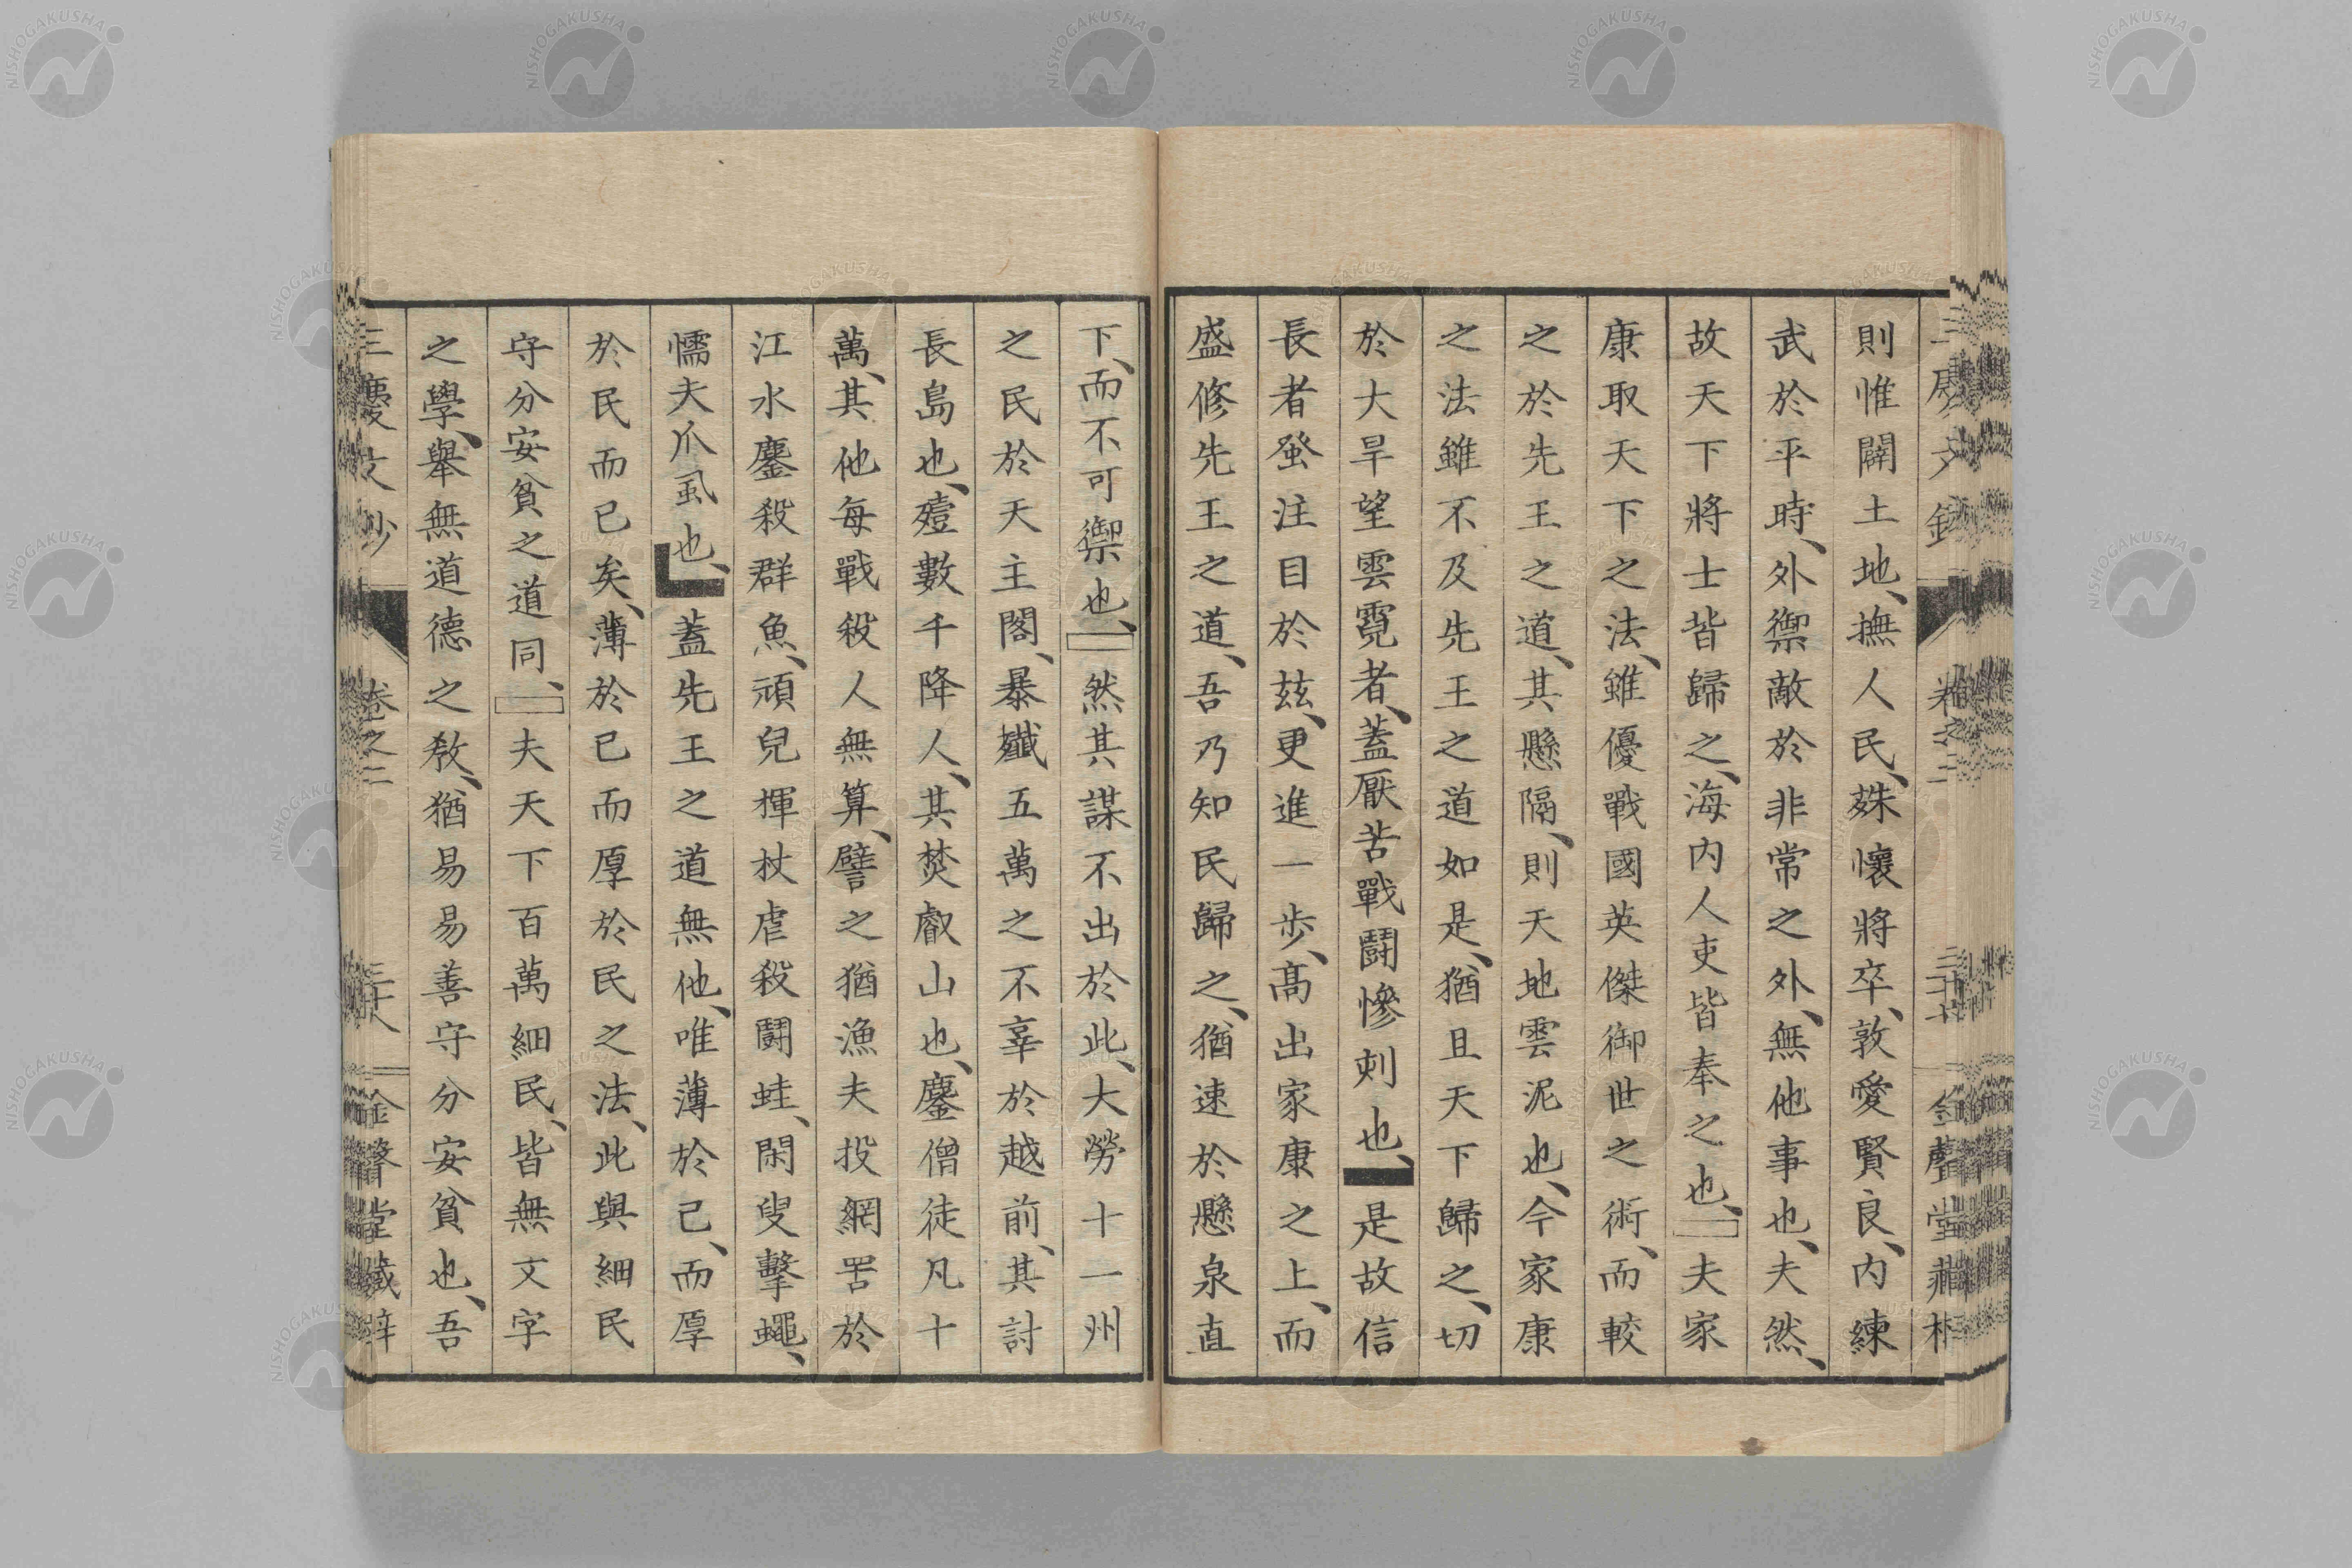 則惟闢土地、撫人民、姝懷將卒、敦愛賢良、内練
武於平時、外禦敵於非常之外、無他事也、夫然、
故天下將士皆歸之、海内人吏皆奉之也、夫家
康取天下之法、雖優戰國英傑御世之術、而較
之於先王之道、其懸隔、則天地雲泥也、今家康
之法雖不及先王之道如是、猶且天下歸之、切
於大旱望雲霓者、蓋厭苦戰鬪慘刺也、是故信
長者發注目於茲、更進一歩、高出家康之上、而
盛修先王之道、吾乃知民歸之、猶速於懸泉直
下、而不可禦也、然其謀不出於此、大勞十一州
之民於天主閣、暴殲五萬之不辜於越前、其討
長島也、殪數千降人、其焚叡山也、鏖僧徒凡十
萬、其他每戰殺人無算、譬之猶漁夫投網罟於
江水鏖殺群魚、頑兒揮杖虐殺鬪蛙、閑叟擊蠅、
懦夫爪虱也、蓋先王之道無他、唯薄於己、而厚
於民而已矣、薄於己而厚於民之法、此與細民
守分安貧之道同、夫天下百萬細民、皆無文字
之學、舉無道德之教、猶易易善守分安貧也、吾
三慶文鈔 卷之二 三十八 金聲堂藏梓